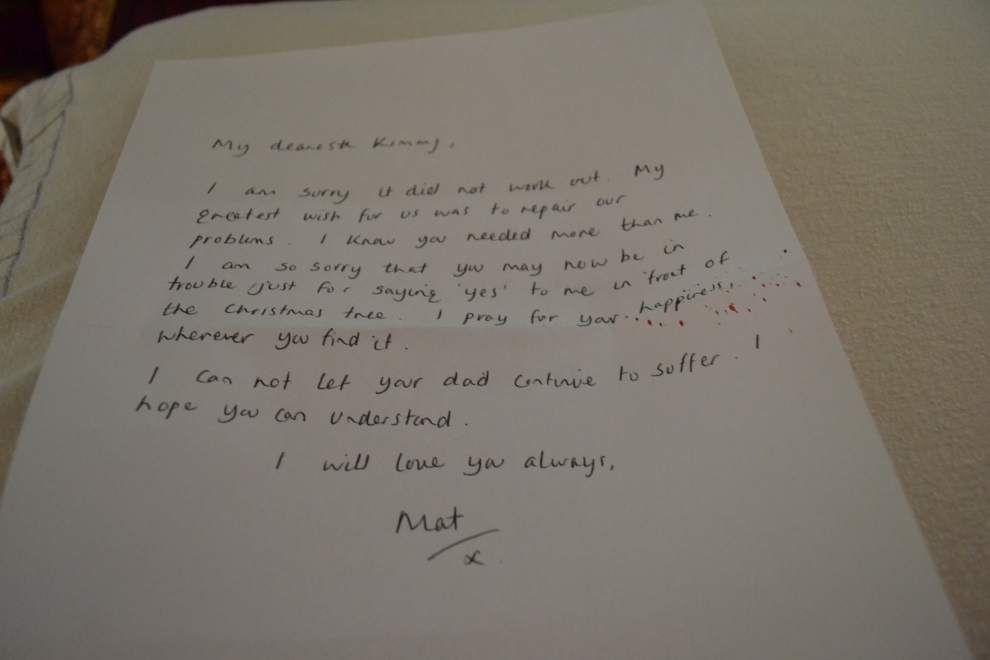 My dearest Kimmy,
I am sorry it did not work out. My
greatest wish for us was to repair our
problems. I know you needed more than me.
I am so sorry that you may now be in
trouble just for saying 'yes' to me in front of
the Christmas tree. I pray for your happiness,
wherever you find it.
I can not let your dad continue to suffer. I
hope you can understand.
I will love you always,
Mat
x